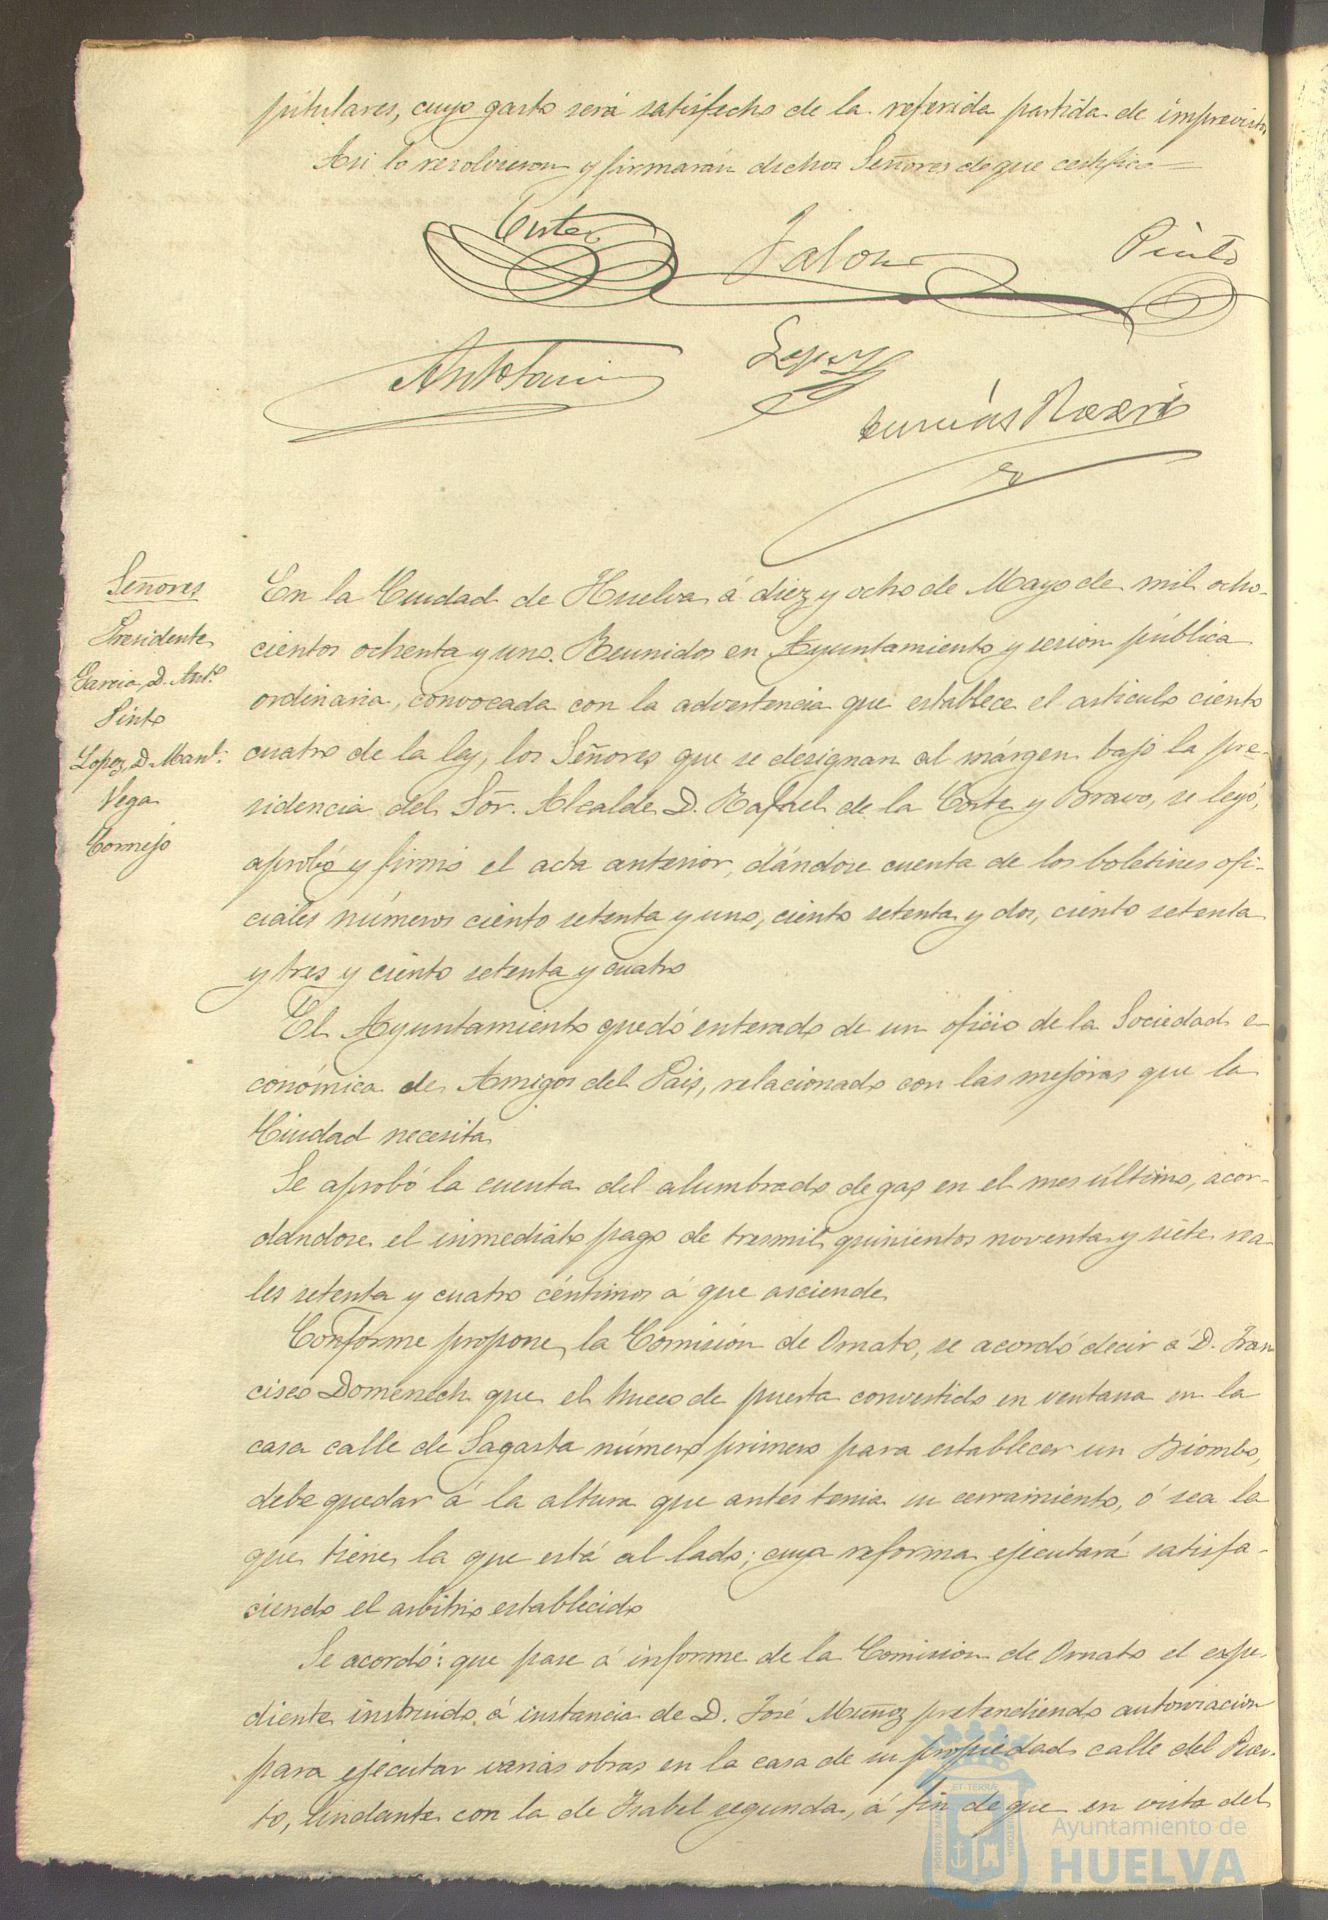 pitulares, cuyo gasto será satisfecho de la referida partida de imprevistos
Asi lo resolvieron y firmarán dichos Señores de que certifico=
Corte
Jalon
Pinto
Ant. Garcia
Lopez
Señores
Presidente
Garcia, D. Ant.º
Pinto
Lopez, D. Man.l
Vega
Cornejo
En la Ciudad de Huelva á diez y ocho de Mayo de mil ocho-
cientos ochenta y uno. Reunidos en Ayuntamiento y sesion pública
ordinaria, convocada con la advertencia que establece el articulo ciento
cuatro de la ley, los Señores que se designan al márgen bajo la pre-
sidencia del Sõr. Alcalde D. Rafael de la Corte y Bravo, se leyó,
aprobó y firmó el acta anterior, dándose cuenta de los boletines ofi-
ciales números ciento setenta y uno, ciento setenta y dos, ciento setenta
y tres y ciento setenta y cuatro
El Ayuntamiento quedó enterado de un oficio de la Sociedad e-
conómica de Amigos del Pais, relacionado con las mejoras que la
Ciudad necesita
Se aprobó la cuenta del alumbrado de gas en el mes último, acor-
dandose el inmediato pago de tresmil quinientos noventa y siete rea-
les setenta y cuatro céntimos á que asciende
Conforme propone la Comisión de Ornato, se acordó decir á D. Fran
cisco Domenech que el hueco de puerta convertido en ventana en la
casa calle de Sagasta número primero para establecer un Biombo,
debe quedar á la altura que antes tenia su cerramiento, ó sea la
que tiene la que está al lado; cuya reforma ejecutará satisfa-
ciendo el arbitrio establecido
Se acordó: que pase á informe de la Comision de Ornato el expe-
diente instruido á instancia de D. José Muñoz pretendiendo autorizacion
para ejecutar varias obras en la casa de su propiedad calle del Puer-
to, lindante con la de Isabel segunda, á fin de que en vista del
Ayuntamiento de
HUELVA